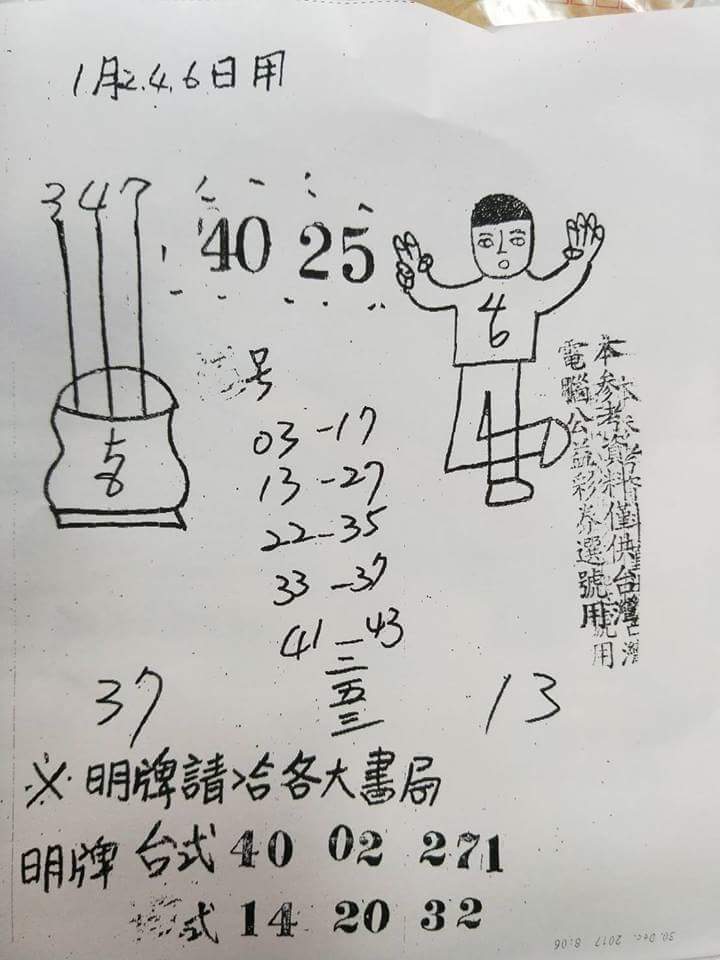 1月2.4.6日用
3 4 7
40 25
4
6
5
8
号
03-17
13-27
22-35
33-37
41-43
二
五
三
37
13
本參考資料僅供台灣
電腦公益彩券選號用
※明牌請洽各大書局
明牌 台式 40 02 271
式 14 20 32
30. Dec. 2017 8:06